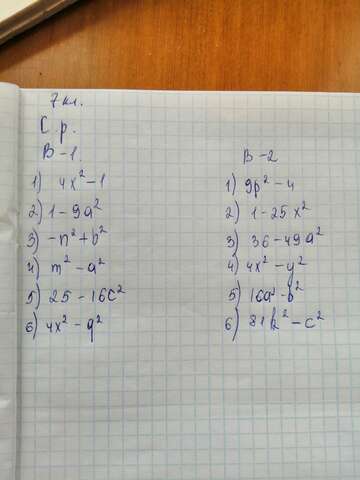 7 кл.
С. р.
В-1.
1) 4x² - 1
2) 1 - 9a²
3) -n² + b²
4) m² - a²
5) 25 - 16c²
6) 4x² - q²
В-2
1) 9p² - 4
2) 1 - 25x²
3) 36 - 49a²
4) 4x² - y²
5) 16a² - b²
6) 81k² - c²